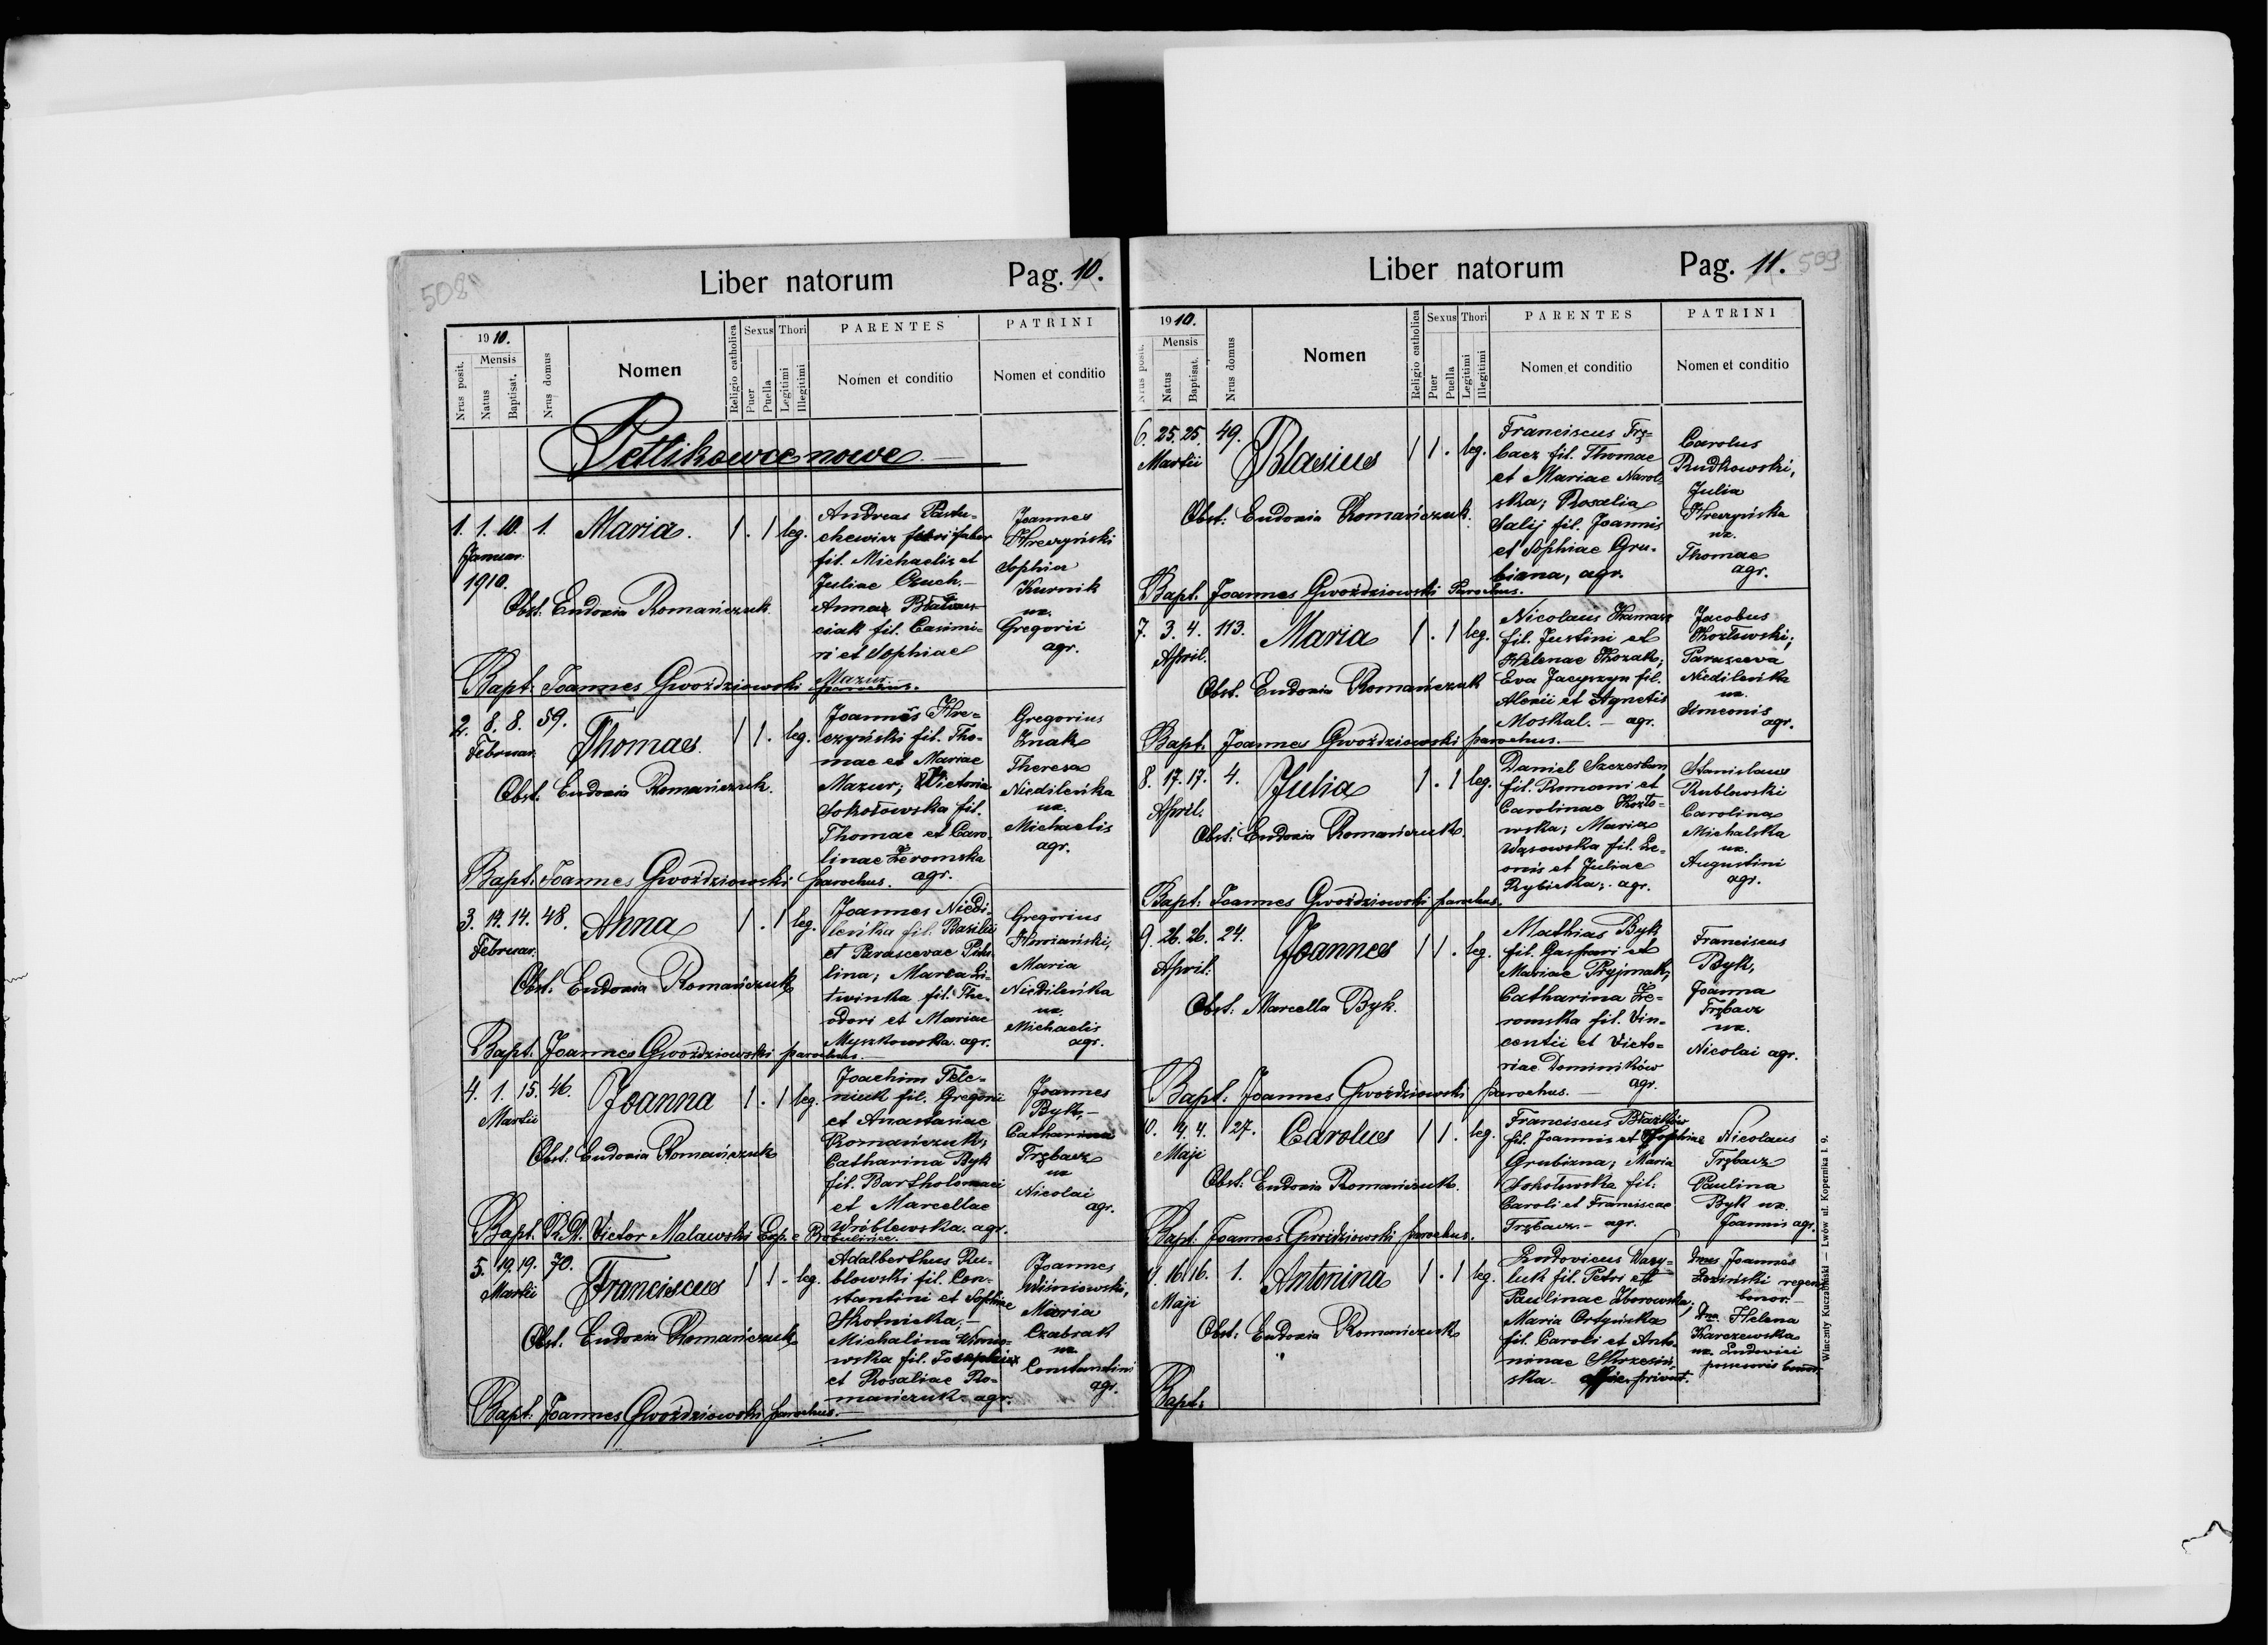 508
Liber natorum Pag. 10.
1910.
Mensis
Nrus posit.
Natus
Baptisat.
Nrus domus
Nomen
Religio catholica
Sexus
Puer
Puella
Thori
Legitimi
Illegitimi
PARENTES
Nomen et conditio
PATRINI
Nomen et conditio
Petlikowce nowe
1. 1. 10. 1. Maria. 1 . 1 leg.
Januar.
1910.
Obst. Eudoxia Romańczuk
Andreas Pastu-
chewicz faber
fil. Michaelis et
Juliae Czuch.-
Annae
ciak fil. Casimi-
ri et Sophiae
Mazur.
Joannes
Hreczyński
Sophia
Kurnik
ux.
Gregorii
agr.
Bapt. Joannes Gwoździowski parochus.
2. 8. 8. 59. Thomas. 1 1 . leg.
Februar.
Obst. Eudoxia Romańczuk.
Joannes Hre-
czyński fil. Tho-
mae et Mariae
Mazur; Victoria
Sokołowska fil.
Thomae et Caro-
linae Żeromska
agr.
Gregorius
Znak
Theresa
Niedileńka
ux.
Michaelis
agr.
Bapt. Joannes Gwoździowski parochus.
3. 14. 14. 48. Anna 1 . 1 leg.
Februar.
Obst. Eudoxia Romańczuk
Joannes Niedi-
leńka fil. Basilii
et Parascevae
lina; Maria Li-
twinka fil. The-
odori et Mariae
Myszkowska. agr.
Gregorius
Maria
Niedileńka
ux.
Michaelis
agr.
Bapt. Joannes Gwoździowski parochus.
4. 1. 15. 46. Joanna 1 . 1 leg.
Martii
Obst. Eudoxia Romańczuk
Joachim Tele-
niuk fil. Gregorii
et Anastasiae
Romańczuk;
Catharina Byk
fil. Bartholomaei
et Marcellae
Wróblewska. agr.
Joannes
Byk,-
Catharina
Trębacz
ux
Nicolai
agr.
Bapt. R.D. Victor Malawski Exp. e Bobulińce.
5. 19. 19. 70. Franciscus 1 1 - leg.
Martii
Obst. Eudoxia Romańczuk
Adalberthus Ru-
blowski fil. Con-
stantini et Sophiae
Skotnicka,-
Michalina
wska fil. Josephi
et Rosaliae Ro-
mańczuk- agr.
Joannes
Wiśniowski,
Maria
Czabrak
ux.
Constantini
agr.
Bapt. Joannes Gwoździowski parochus.
Liber natorum Pag. 11. 509
1910.
Mensis
Nrus posit.
Natus
Baptisat.
Nrus domus
Nomen
Religio catholica
Sexus
Puer
Puella
Thori
Legitimi
Illegitimi
PARENTES
Nomen et conditio
PATRINI
Nomen et conditio
6. 25. 25. 49. Blasius 1 1 . leg.
Martii
Obst. Eudoxia Romańczuk.
Franciscus Trę-
bacz fil. Thomae
et Mariae Narol-
ska; Rosalia
Salij fil. Joannis
et Sophiae Gru-
bizna, agr.
Carolus
Rudkowski,
Julia
Hreczyńska
ux.
Thomae
agr.
Bapt. Joannes Gwoździowski Parochus.
7. 3. 4. 113. Maria 1 . 1 leg.
April.
Obst. Eudoxia Romańczuk
Nicolaus
fil. Justini et
Helenae Kozak;
Eva Jacyszyn fil.
Alexii et Agnetis
Moskal. - agr.
Jacobus
Kozłowski;
Parasceva
Niedileńka
ux.
Simeonis
agr.
Bapt. Joannes Gwoździowski parochus.
8. 17. 17. 4. Julia 1 . 1 leg.
April.
Obst. Eudoxia Romańczuk
Daniel Szczerban
fil. Romani et
Carolinae Kozło-
wska; Maria
Wąsowska fil. Le-
onis et Juliae
Rybicka; agr.
Stanislaus
Rublowski
Carolina
Michalska
ux.
Augustini
agr.
Bapt. Joannes Gwoździowski parochus.
9. 26. 26. 24. Joannes 1 1 . leg.
April.
Obst. Marcella Byk.
Mathias Byk
fil. Gaspari et
Mariae Pryjmak;
Catharina Że-
romska fil. Vin-
centii et Victo-
riae Dominików
agr.
Franciscus
Byk,
Joanna
Trębacz
ux.
Nicolai agr.
Bapt. Joannes Gwoździowski parochus.
10. 4. 4. 127. Carolus 1 1 . leg.
Maji
Obst. Eudoxia Romańczuk.
Franciscus Błażków
fil. Joannis et Sophiae
Grubizna; Maria
Sokołowska fil.
Caroli et Franciscae
Trębacz.- agr.
Nicolaus
Trębacz
Paulina
Byk ux.
Joannis agr.
Bapt. Joannes Gwoździowski parochus.
11. 16. 16. 1. Antonina 1 . 1 leg.
Maji
Obst. Eudoxia Romańczuk
Ludovicus Wasy-
luk fil. Petri et
Paulinae Zborowska;
Maria Ortyńska
fil. Caroli et Anto-
ninae Skrzesiń-
ska - privat.
Dnus Joannes
Łoziński regens
bonor.
Dna. Helena
Karczewska
ux. Ludovici
possessoris bonor.
Bapt:
Wincenty Kuczabiński — Lwów ul. Kopernika l. 9.